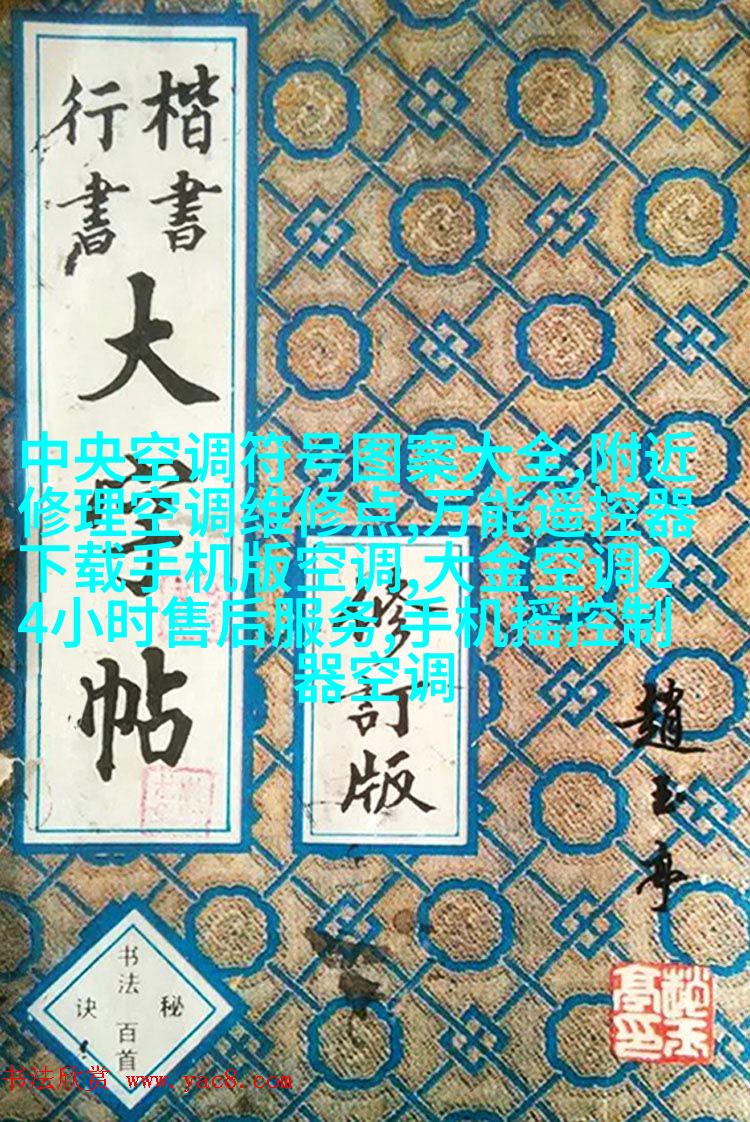 楷書
行書
大字帖
中央空调符号图案大全,附近
修理空调维修点,万能遥控器
下载手机版空调,大金空调2
4小时售后服务,手机摇控制
器空调
修訂版
趙玉亭
书法百首
秘诀
书法欣赏 www.yac8.com